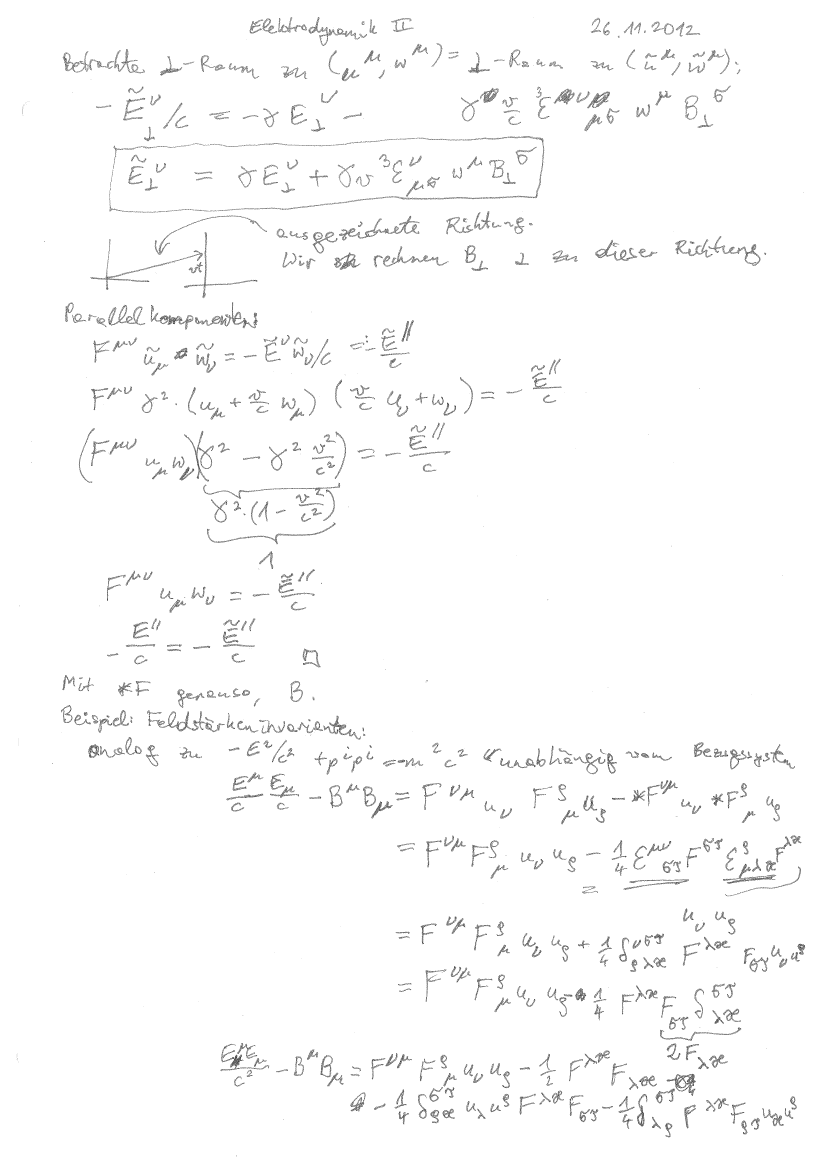 Elektrodynamik II 26.11.2012
Betrachte ⊥-Raum zu (u^μ, w^μ) = ⊥-Raum zu (ũ^μ, w̃^μ);
- Ẽ_⊥^ν/c = -γ E_⊥^ν - γ v/c ³ε^ν_μσ w^μ B_⊥^σ
Ẽ_⊥^ν = γ E_⊥^ν + γ v ³ε^ν_μσ w^μ B_⊥^σ
ausgezeichnete Richtung.
vt
Wir rechnen B_⊥ ⊥ zu dieser Richtung.
Parallelkomponenten:
F^μν ũ_μ w̃_ν = - Ẽ^ν w̃_ν/c = - Ẽ^∥/c
F^μν γ² · (u_μ + v/c w_μ) (v/c u_ν + w_ν) = - Ẽ^∥/c
(F^μν u_μ w_ν)(γ² - γ² v²/c²) = - Ẽ^∥/c
γ² · (1 - v²/c²)
1
F^μν u_μ w_ν = - Ẽ^∥/c
- E^∥/c = - Ẽ^∥/c □
Mit *F genauso, B.
Beispiel: Feldstärkeninvarianten:
analog zu -E²/c² + p^i p^i = -m²c² "unabhängig vom Bezugssystem
E^μ/c E_μ/c - B^μ B_μ = F^νμ u_ν F^ρ_μ u_ρ - *F^νμ u_ν *F^ρ_μ u_ρ
= F^νμ F^ρ_μ u_ν u_ρ - 1/4 ε^μν_στ F^στ ε^ρ_μλϰ F^λϰ
u_ν u_ρ
= F^νμ F^ρ_μ u_ν u_ρ + 1/4 δ^νστ_ρλϰ F^λϰ F_στ u_ν u^ρ
= F^νμ F^ρ_μ u_ν u_ρ - 1/4 F^λϰ F_στ δ^στ_λϰ
2F_λϰ
E^μ E_μ/c² - B^μ B_μ = F^νμ F^ρ_μ u_ν u_ρ - 1/2 F^λϰ F_λϰ
- 1/4 δ^στ_ρϰ u_λ u^ρ F^λϰ F_στ - 1/4 δ^στ_λρ F^λϰ F_στ u_ϰ u^ρ